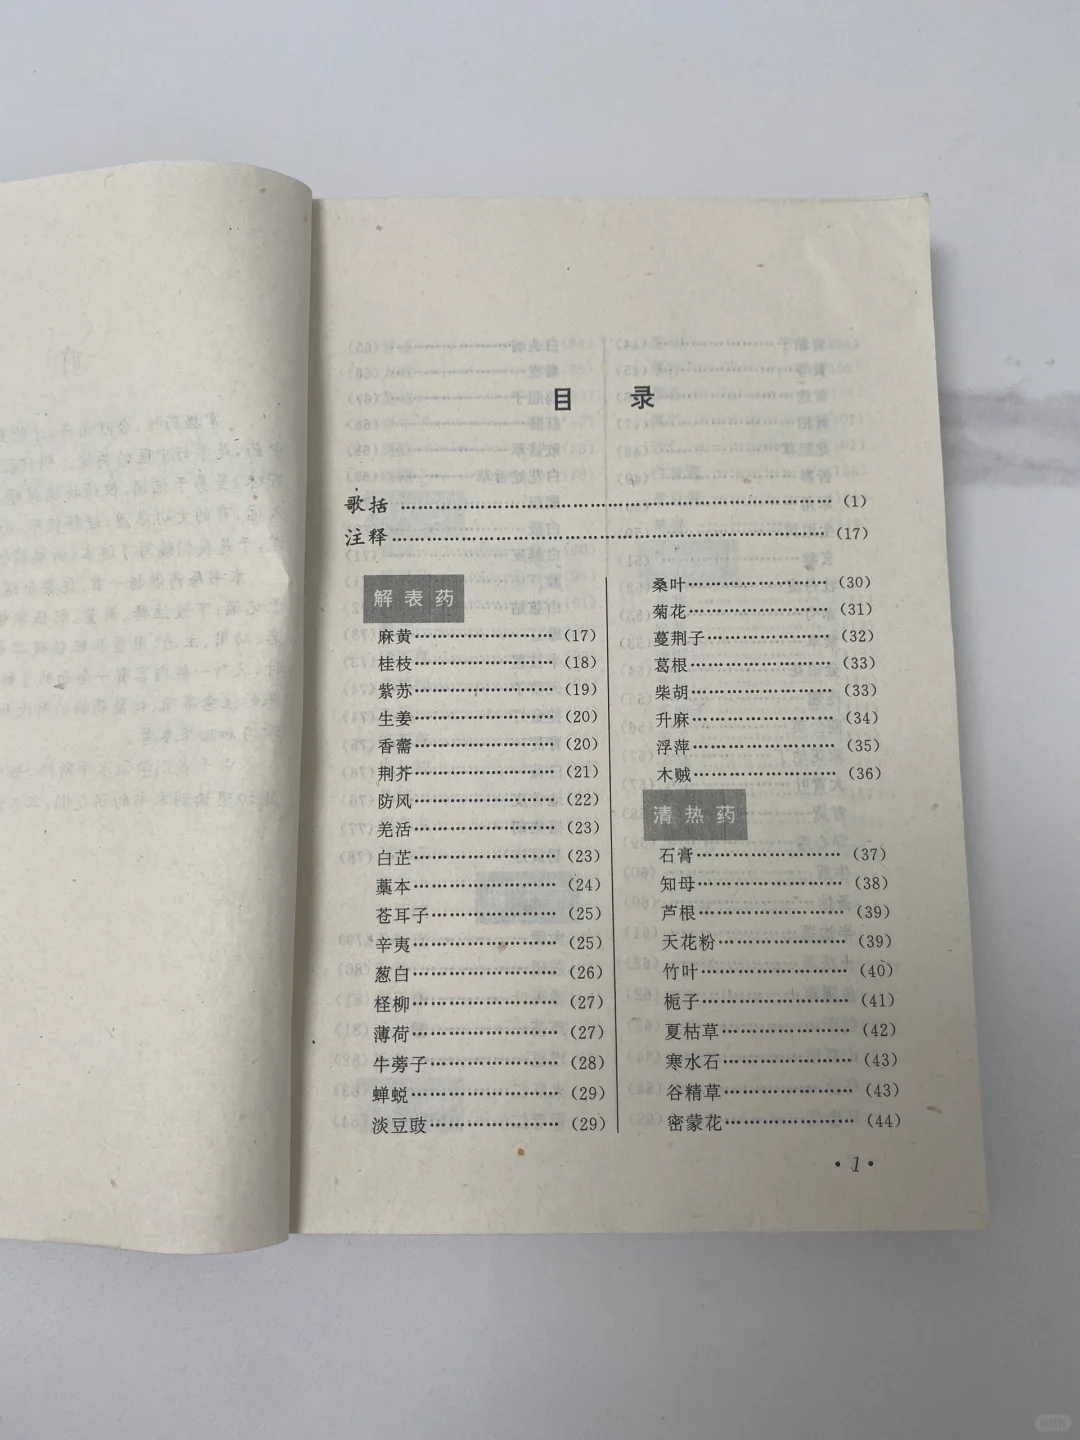 目 录
歌括……………………………………………………(1)
注释……………………………………………………(17)
解表药
麻黄……………………(17)
桂枝……………………(18)
紫苏……………………(19)
生姜……………………(20)
香薷……………………(20)
荆芥……………………(21)
防风……………………(22)
羌活……………………(23)
白芷……………………(23)
藁本……………………(24)
苍耳子…………………(25)
辛夷……………………(25)
葱白……………………(26)
柽柳……………………(27)
薄荷……………………(27)
牛蒡子…………………(28)
蝉蜕……………………(29)
淡豆豉…………………(29)
桑叶……………………(30)
菊花……………………(31)
蔓荆子…………………(32)
葛根……………………(33)
柴胡……………………(33)
升麻……………………(34)
浮萍……………………(35)
木贼……………………(36)
清热药
石膏……………………(37)
知母……………………(38)
芦根……………………(39)
天花粉…………………(39)
竹叶……………………(40)
栀子……………………(41)
夏枯草…………………(42)
寒水石…………………(43)
谷精草…………………(43)
密蒙花…………………(44)
·1·